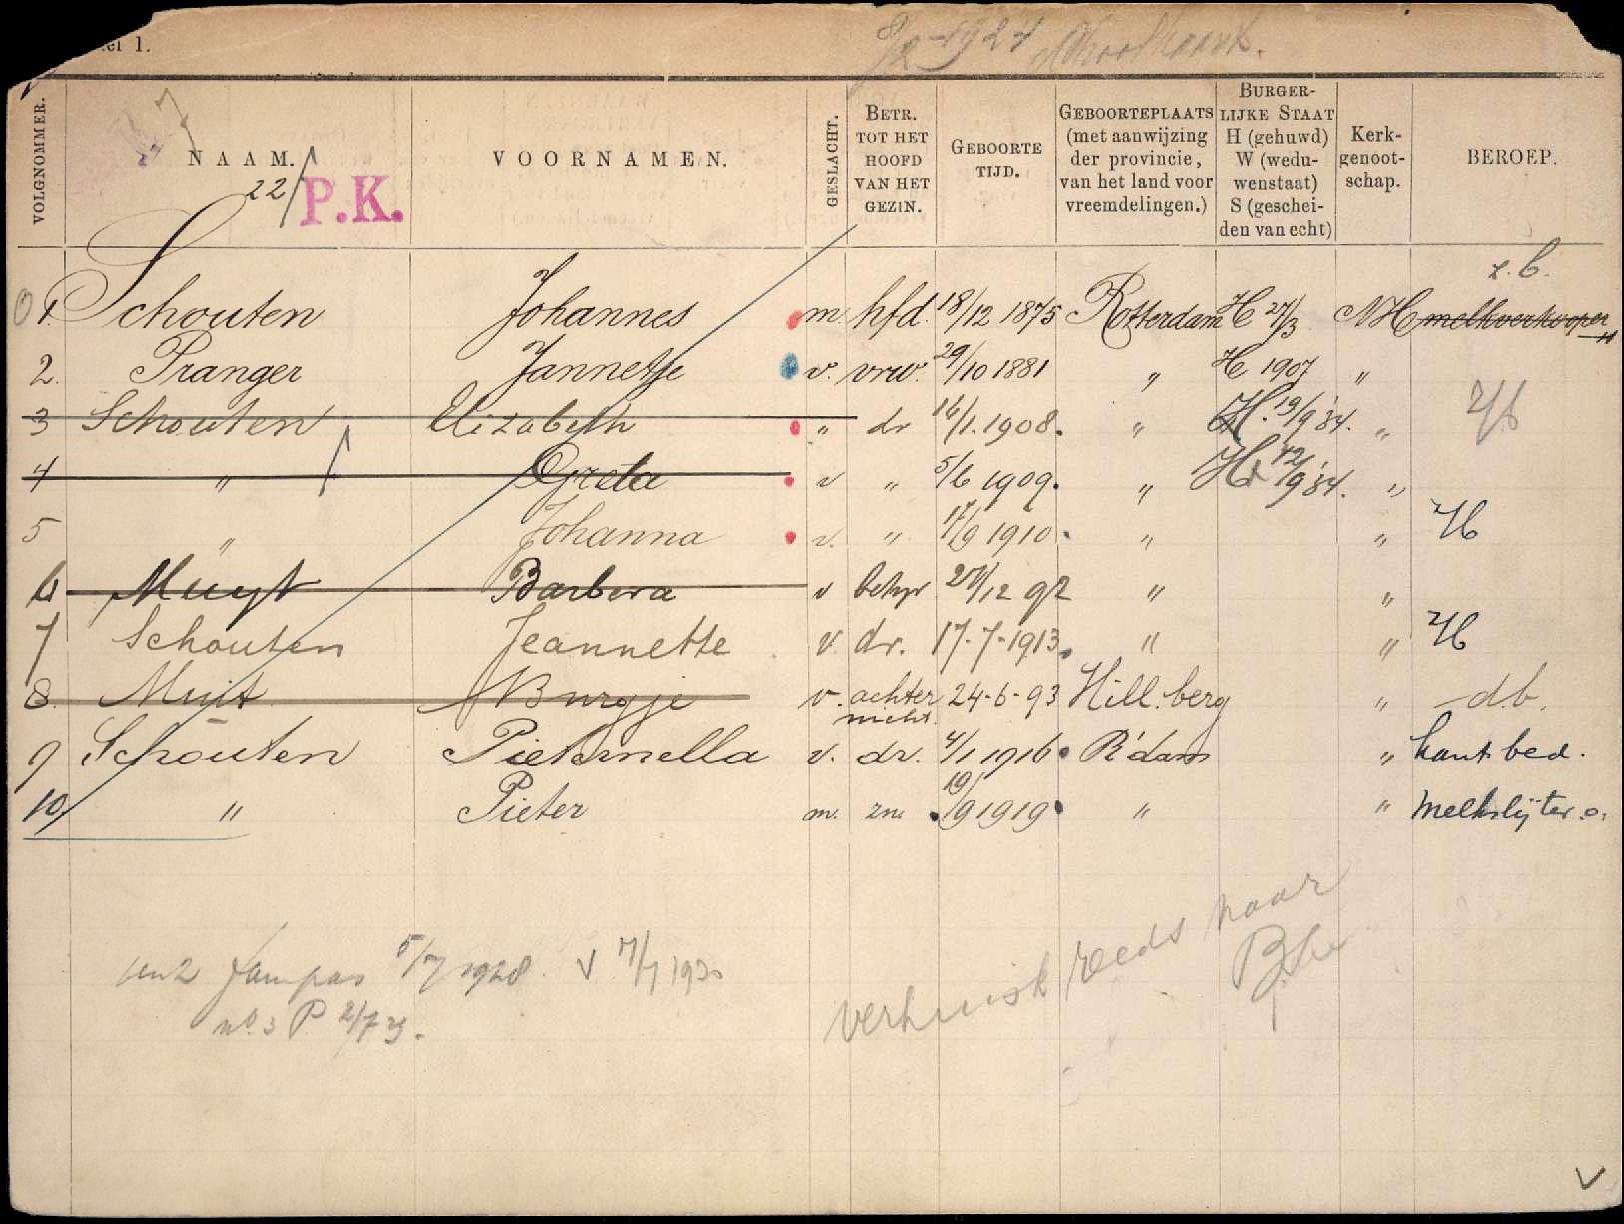 1.
1924
VOLGNOMMER.
NAAM.
VOORNAMEN.
GESLACHT.
BETR. TOT HET HOOFD VAN HET GEZIN.
GEBOORTE TIJD.
GEBOORTEPLAATS (met aanwijzing der provincie, van het land voor vreemdelingen.)
BURGER-LIJKE STAAT H (gehuwd) W (wedu-wenstaat) S (geschei-den van echt)
Kerk-genoot-schap.
BEROEP.
22/
P.K.
z.b.
1. Schouten Johannes m hfd. 18/12 1875 Rotterdam H 27/3 NH melkverkooper
2. Pranger Jannetje v. vrw. 29/10 1881 " H 1907 "
3 Schouten Elizabeth " dr 16/1.1908. " H. 19/9'34. "
4 " Greta v " 5/6 1909. " H. 12/9'34. "
5 " Johanna v. " 17/9 1910. " "
6 Muyt Barbera v behr 27/12 92 " "
7 Schouten Jeannette v dr. 17-7-1913. " "
8. Muijt Burgje v. achter nicht. 24-6-93 Hill.berg " d.b.
9 Schouten Pieternella v. dr. 4/1 1916 R'dam " kant. bed.
10 " Pieter m. zn. 19/9 1919 " " melkslijter.o.
5/7 1928. V 7/7 1930
no. 3 P 2/7 29.
verhuisk reeds naar